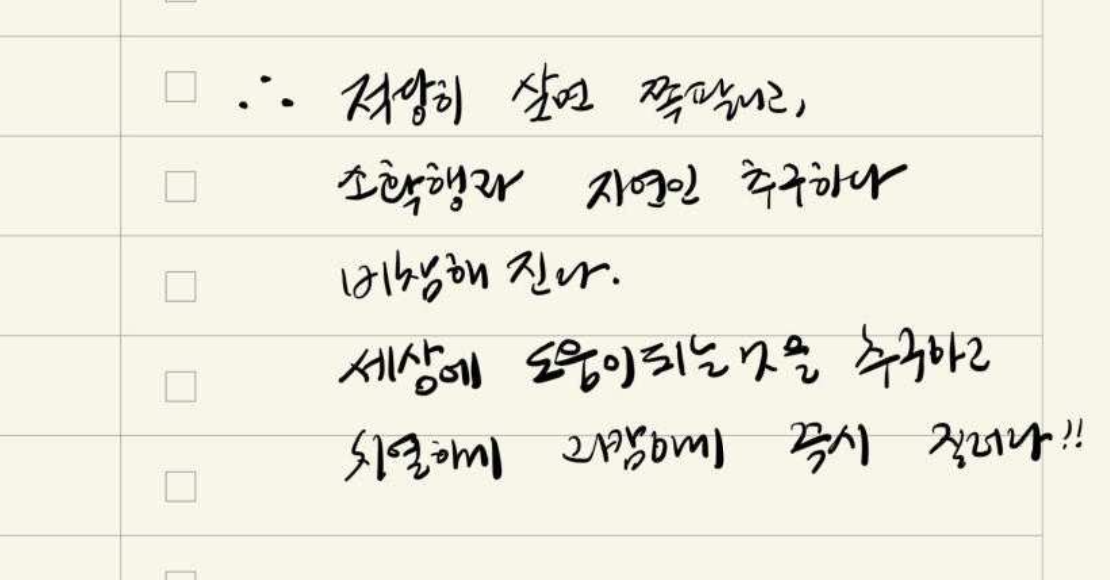 ∴ 적당히 살면 쪽팔리고,
소확행과 자연인 추구하다
비참해 진다.
세상에 도움이되는 것을 추구하고
치열하게 과감하게 질러라!!